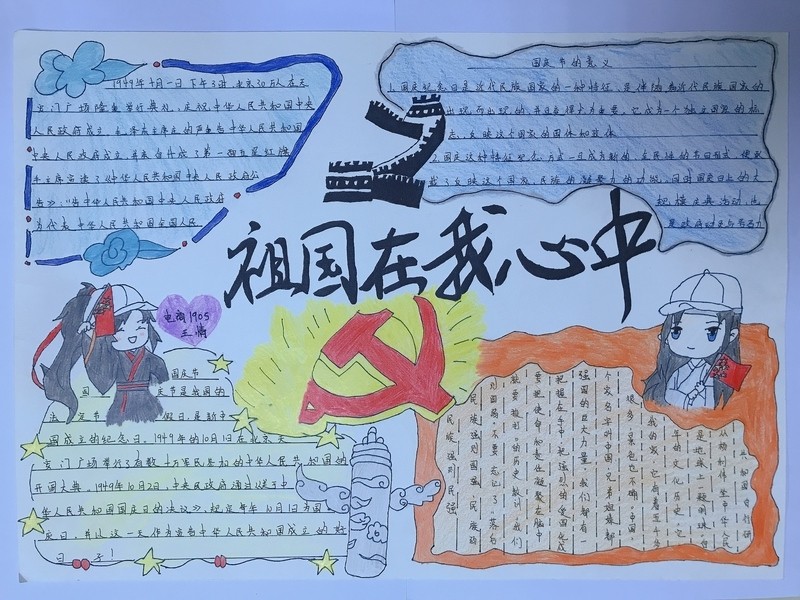 1949年十月一日下午3时,北京30万人在天
安门广场隆重举行典礼,庆祝中华人民共和国中央
人民政府成立,毛泽东主席庄严宣告中华人民共和国
中央人民政府成立,并亲自升起了第一面五星红旗
毛主席宣读了《中华人民共和国中央人民政府公
告》:"中华人民共和国中央人民政府
为代表中华人民共和国全国人民
国庆节的意义
1.国庆纪念日是近代民族国家的一种特征,是伴随着近代民族国家的
出现而出现的,并且变得尤为重要,它成为一个独立国家的标
志,反映这个国家的国体和政体
2.国庆这种特殊纪念方式一旦成为新的、全民性的节日形式,便承
载了反映这个国家、民族的凝聚力的功能,同时国庆日上的大
规模庆典活动,也
是政府动员与号召力
祖国在我心中
电商1905
王
国庆节
国庆节是我国的
法定节假日,是新中
国成立的纪念日。1949年的10月1日在北京天
安门广场举行了有数十万军民参加的中华人民共和国
开国大典。1949年10月2日,中央民政府通过《关于中
华人民共和国国庆日的决议》,规定每年10月1日为国
庆日,并以这一天作为宣告中华人民共和国成立的
日子!
共和国守行讲
从胜利伟坐中华人民
是地球上一颗明珠。
年的文化历史。它
我的家,它有着五千
很多,景色也不嘛!中国,
个家名字叫中国,兄弟姐妹都
强国的巨大力量。我们都有一
把握在手中,把强烈的爱国变成
要把使命和责任凝聚在脑中
就要挨打"的历史教训,我们
刘国家,不要忘记了"落后
民族强则国强,民族强
民族强则民强